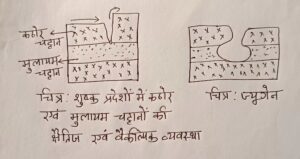 कठोर
चट्टान
मुलायम
चट्टान
चित्र: शुष्क प्रदेशों में कठोर
एवं मुलायम चट्टानों की
क्षैतिज एवं वैकल्पिक व्यवस्था
चित्र: ज्यूगेन